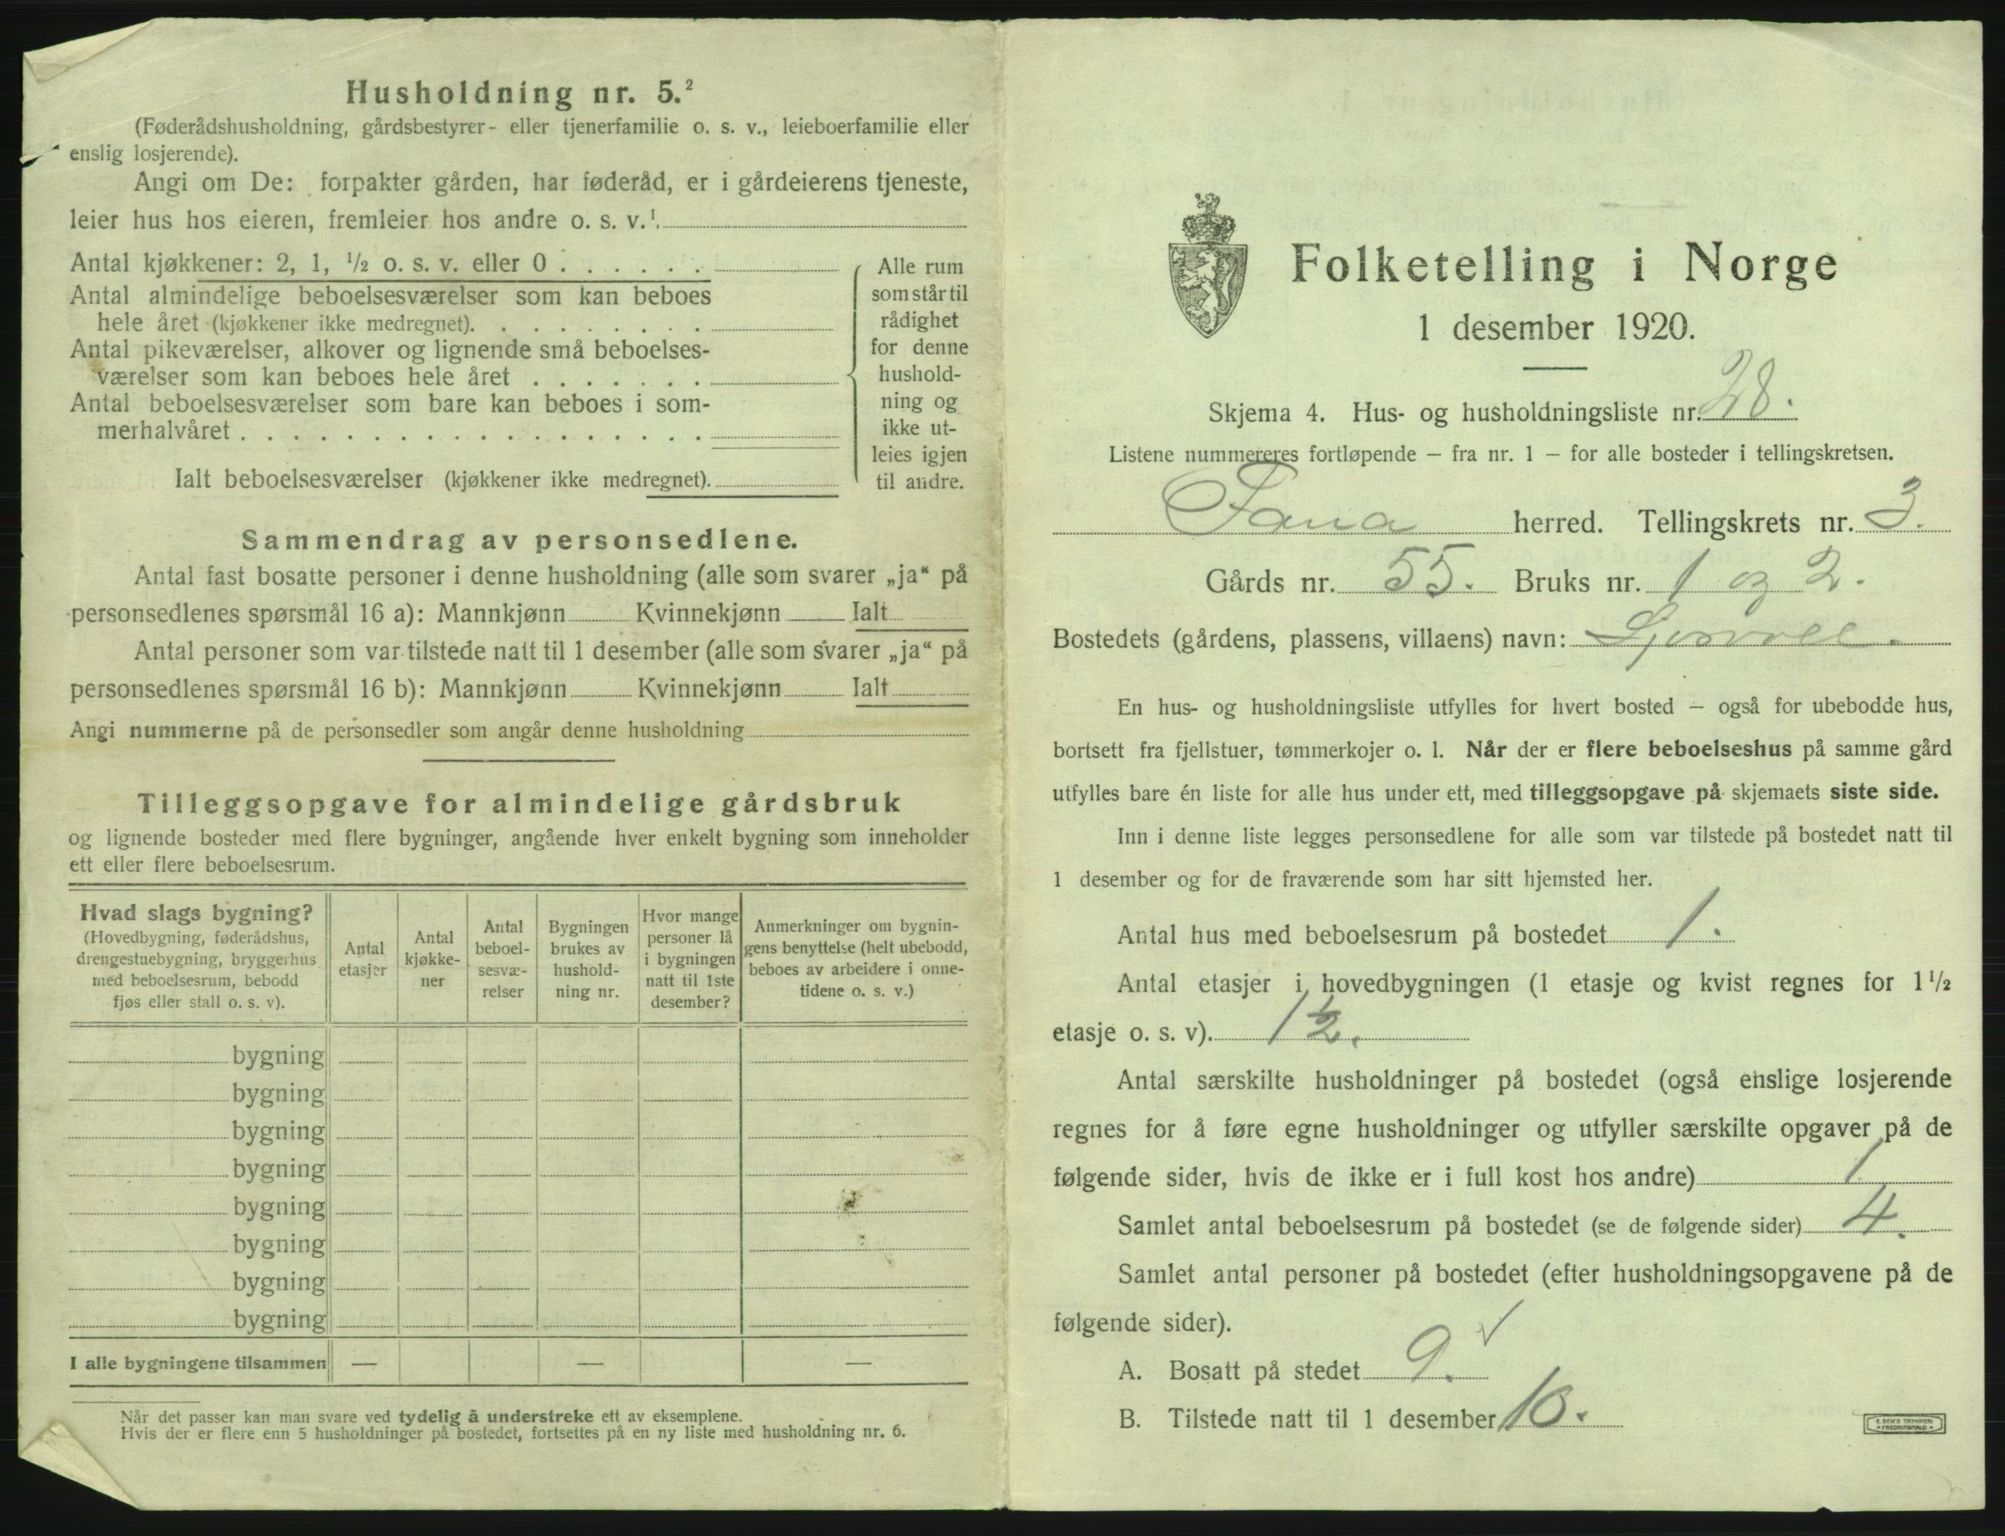 Husholdning nr. 5.²
(Føderådshusholdning, gårdsbestyrer- eller tjenerfamilie o. s. v., leieboerfamilie eller
enslig losjerende).
Angi om De: forpakter gården, har føderåd, er i gårdeierens tjeneste,
leier hus hos eieren, fremleier hos andre o. s. v.¹
Antal kjøkkener: 2, 1, ½ o. s. v. eller 0 . . . . . .
Antal almindelige beboelsesværelser som kan beboes
hele året (kjøkkener ikke medregnet). . . . . . . . .
Antal pikeværelser, alkover og lignende små beboelses-
værelser som kan beboes hele året . . . . . . .
Antal beboelsesværelser som bare kan beboes i som-
merhalvåret . . . . . . . . . . . . . . . . . .
Alle rum
som står til
rådighet
for denne
hushold-
ning og
ikke ut-
leies igjen
til andre.
Ialt beboelsesværelser (kjøkkener ikke medregnet).
Sammendrag av personsedlene.
Antal fast bosatte personer i denne husholdning (alle som svarer „ja“ på
personsedlenes spørsmål 16 a): Mannkjønn Kvinnekjønn Ialt
Antal personer som var tilstede natt til 1 desember (alle som svarer „ja“ på
personsedlenes spørsmål 16 b): Mannkjønn Kvinnekjønn Ialt
Angi nummerne på de personsedler som angår denne husholdning
Tilleggsopgave for almindelige gårdsbruk
og lignende bosteder med flere bygninger, angående hver enkelt bygning som inneholder
ett eller flere beboelsesrum.
Hvad slags bygning?
(Hovedbygning, føderådshus,
drengestuebygning, bryggerhus
med beboelsesrum, bebodd
fjøs eller stall o. s. v).
Antal
etasjer
Antal
kjøkke-
ner
Antal
beboel-
sesvæ-
relser
Bygningen
brukes av
hushold-
ning nr.
Hvor mange
personer lå
i bygningen
natt til 1ste
desember?
Anmerkninger om bygnin-
gens benyttelse (helt ubebodd,
beboes av arbeidere i onne-
tidene o. s. v.)
bygning
bygning
bygning
bygning
bygning
bygning
bygning
bygning
I alle bygningene tilsammen — — —
Når det passer kan man svare ved tydelig å understreke ett av eksemplene.
Hvis der er flere enn 5 husholdninger på bostedet, fortsettes på en ny liste med husholdning nr. 6.
Folketelling i Norge
1 desember 1920.
Skjema 4. Hus- og husholdningsliste nr. 28.
Listene nummereres fortløpende – fra nr. 1 – for alle bosteder i tellingskretsen.
Fana herred. Tellingskrets nr. 3.
Gårds nr. 55. Bruks nr. 1 og 2.
Bostedets (gårdens, plassens, villaens) navn:
En hus- og husholdningsliste utfylles for hvert bosted – også for ubebodde hus,
bortsett fra fjellstuer, tømmerkojer o. l. Når der er flere beboelseshus på samme gård
utfylles bare én liste for alle hus under ett, med tilleggsopgave på skjemaets siste side.
Inn i denne liste legges personsedlene for alle som var tilstede på bostedet natt til
1 desember og for de fraværende som har sitt hjemsted her.
Antal hus med beboelsesrum på bostedet 1.
Antal etasjer i hovedbygningen (1 etasje og kvist regnes for 1½
etasje o. s. v). 1½.
Antal særskilte husholdninger på bostedet (også enslige losjerende
regnes for å føre egne husholdninger og utfyller særskilte opgaver på de
følgende sider, hvis de ikke er i full kost hos andre) 1
Samlet antal beboelsesrum på bostedet (se de følgende sider) 4.
Samlet antal personer på bostedet (efter husholdningsopgavene på de
følgende sider).
A. Bosatt på stedet 9. ✓
B. Tilstede natt til 1 desember 10.